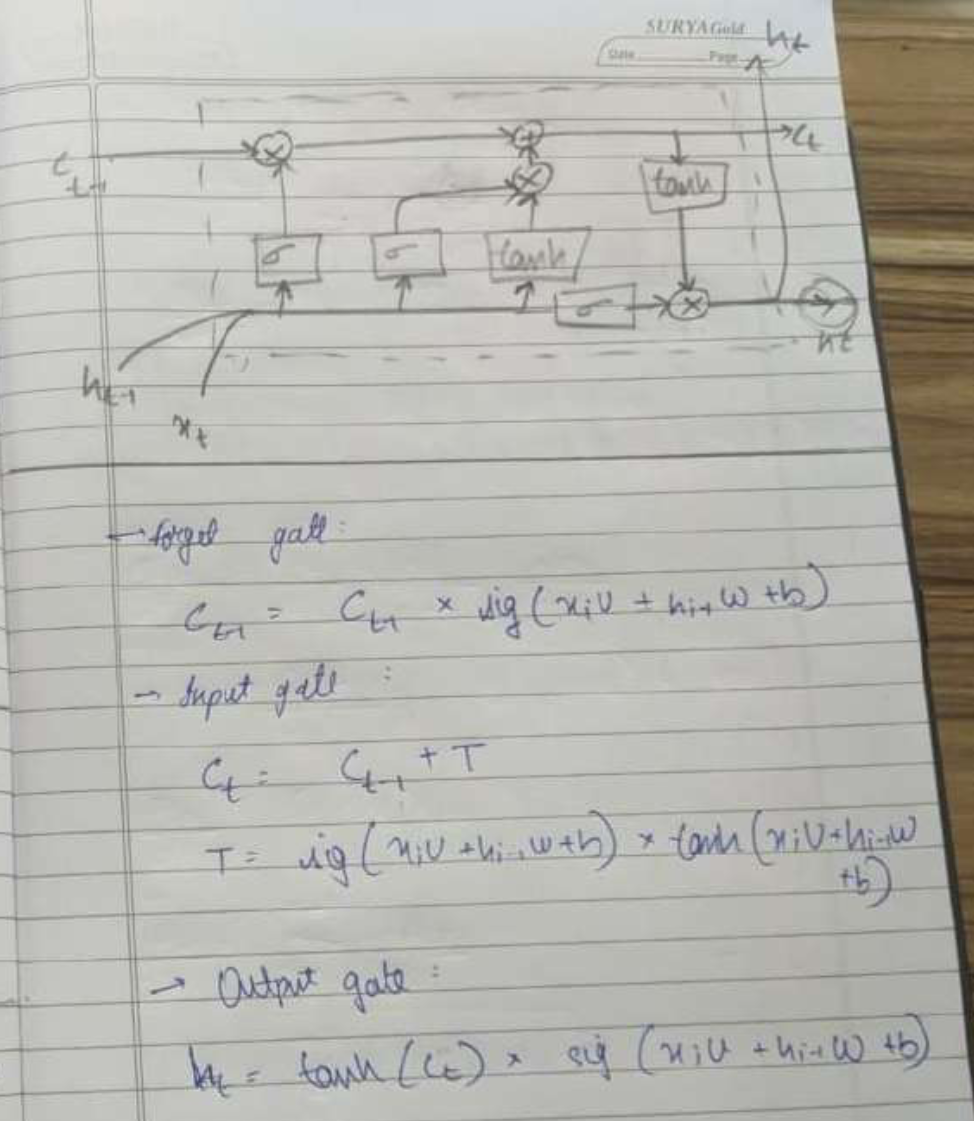 SURYA Gold
Date Page
hₜ
Cₜ₋₁
×
+
Cₜ
×
tanh
σ σ tanh
σ
×
hₜ
hₜ₋₁
xₜ
→ forget gate :
Cₜ₋₁ = Cₜ₋₁ × sig (xᵢU + hᵢ₋₁W + b)
→ Input gate :
Cₜ = Cₜ₋₁ + T
T = sig (xᵢU + hᵢ₋₁W + b) × tanh (xᵢU + hᵢ₋₁W
+b)
→ Output gate :
hₜ = tanh (Cₜ) × sig (xᵢU + hᵢ₋₁W + b)